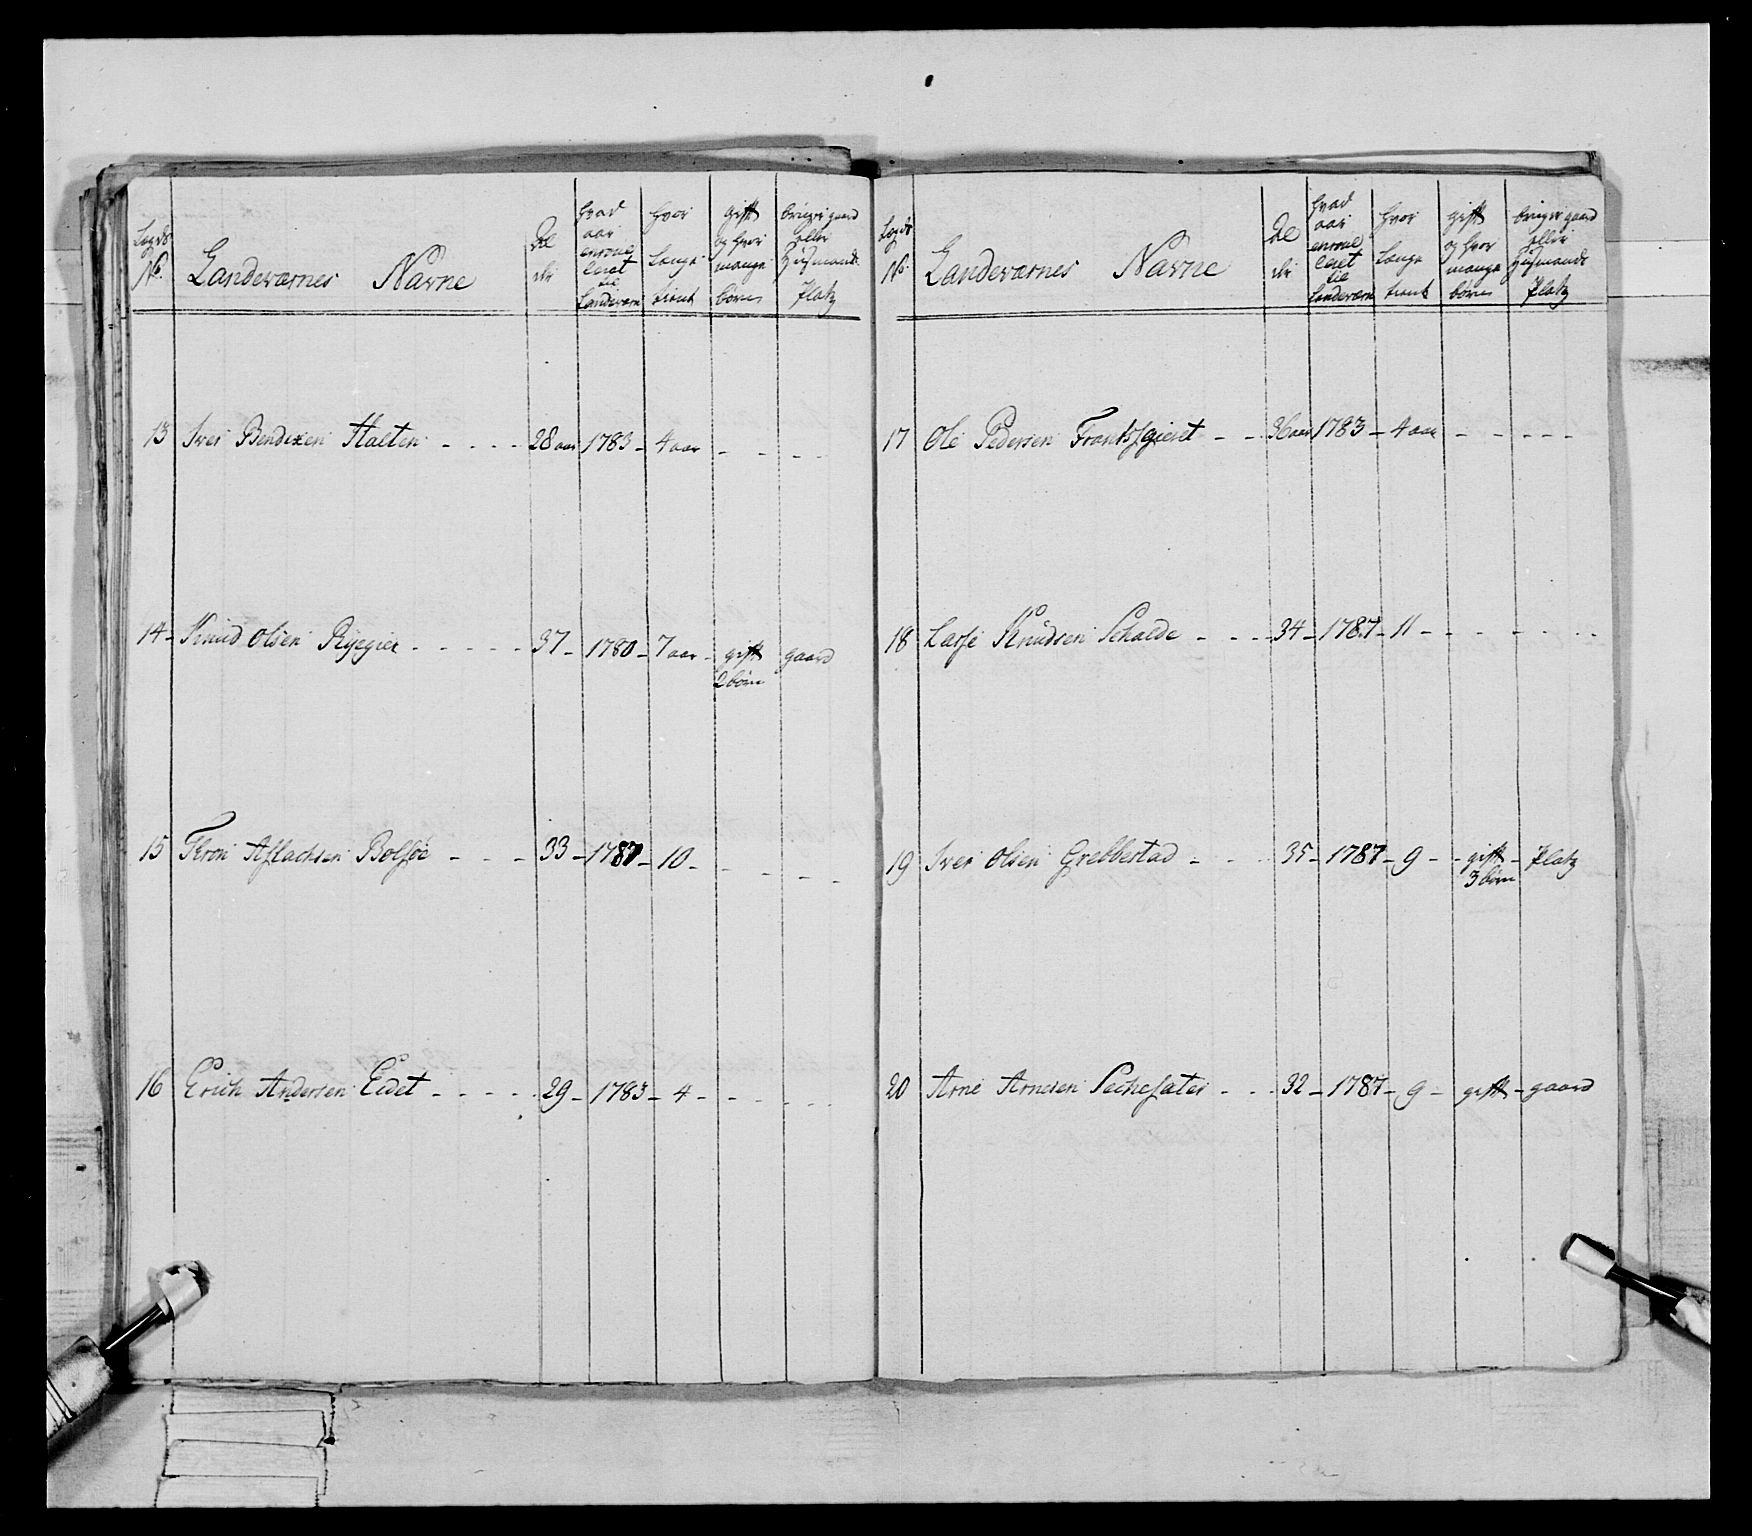 Legds No. Landeværnes Navne Alder hvad aar enrolleret til Landeværn hvor længe tient gift og hvor mange børn bruger gaard eller Huusmands Platz
13 Iver Bendixen Halten - - - - 28 aar 1783 - 4 aar - - - -
14 - Knud Olsen - - - - - 37 - 1780 - 7 aar - gift gaard
2 børn
15 Aslachsen Bolsøe - - - 33 - 1787 - 10 - - - - -
16 Erich Andersen Eidet - - - - - 29 - 1783 - 4 - - - - -
Legds No. Landeværnes Navne Alder hvad aar enrolleret til Landeværn hvor længe tient gift og hvor mange børn bruger gaard eller Huusmands Platz
17 Ole Pedersen - - - 36 aar 1783 - 4 aar - - - - -
18 Lasse Knudsen - - - - 34 - 1787 - 11 - - - - - -
19 Iver Olsen Grebbestad - - - 35 - 1787 - 9 - - gift - Platz
3 børn
20 Arne Arnesen - - - 32 - 1787 - 9 - gift - gaard